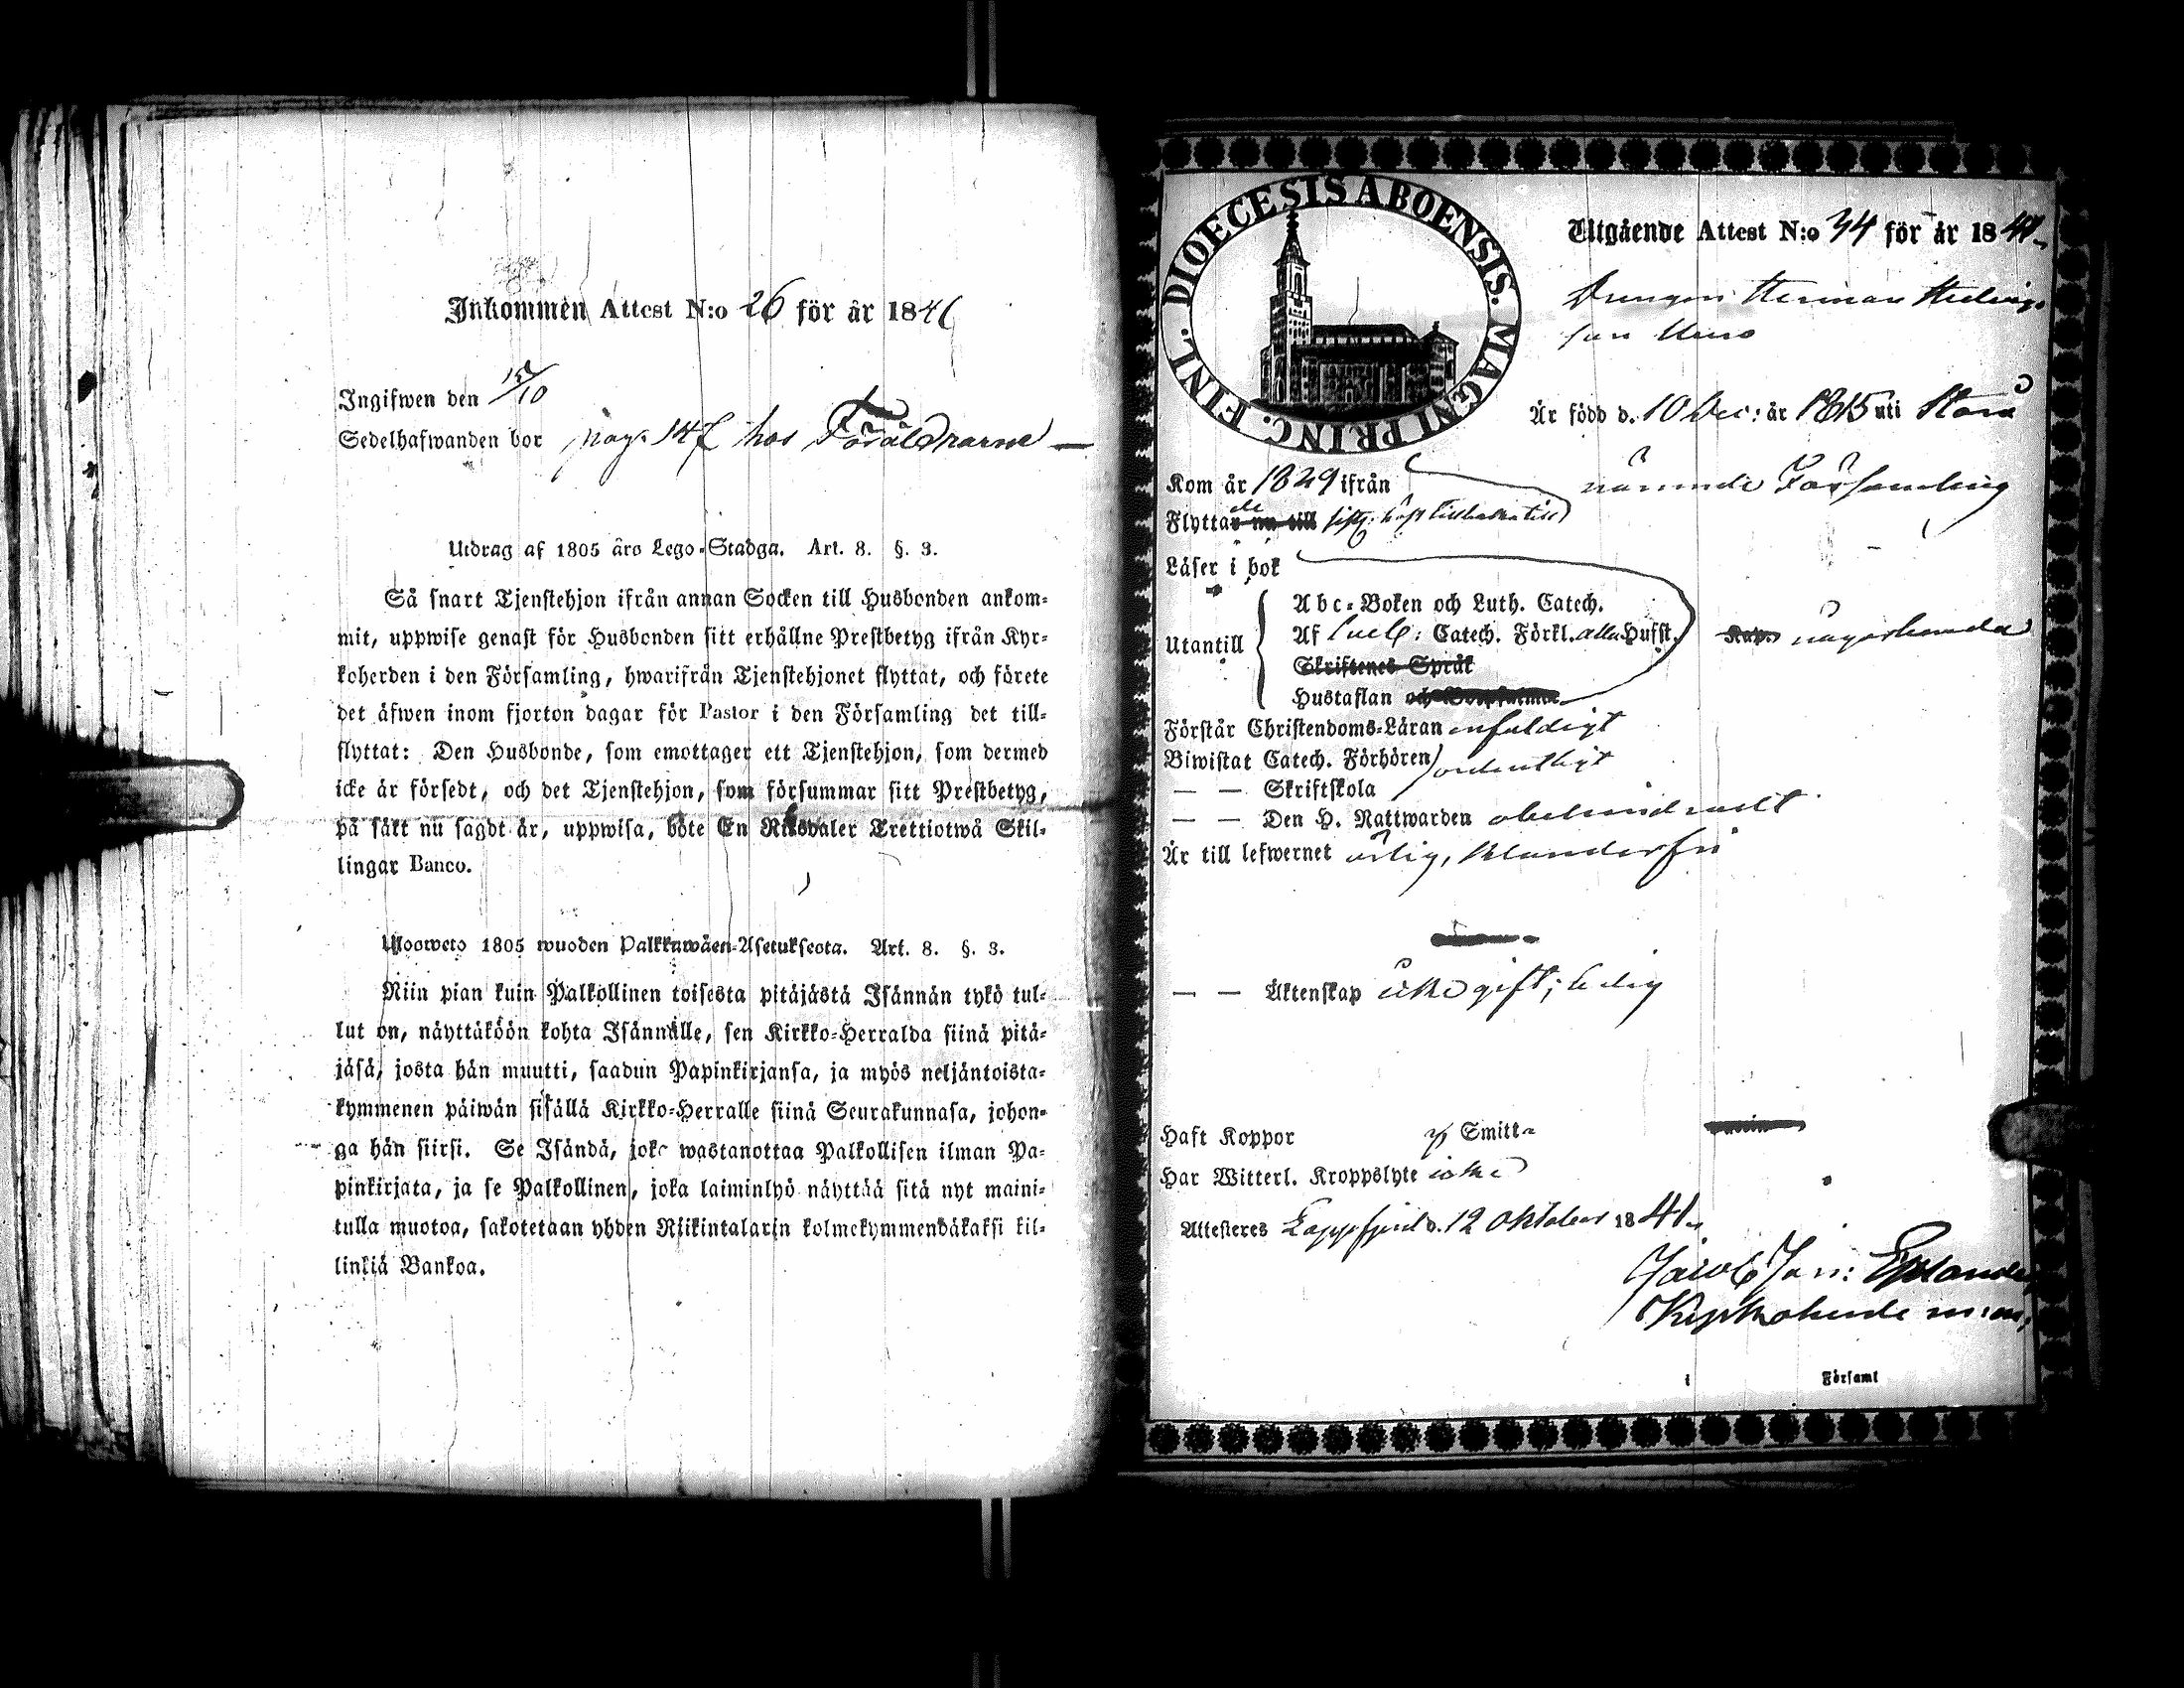 Inkommen Attest N:o 26 för år 1841
Ingifwen den 15/10
Sedelhafwanden bor pag. 147 hos Föräldrarne —
Utdrag af 1805 års Lego-Stadga. Art. 8. §. 3.
Så snart Tjenstehjon ifrån annan Socken till Husbonden ankom-
mit, uppwise genast för Husbonden sitt erhållne Prestbetyg ifrån Kyr-
koherden i den Församling, hwarifrån Tjenstehjonet flyttat, och förete
det äfwen inom fjorton dagar för Pastor i den Församling det till-
flyttat: Den Husbonde, som emottager ett Tjenstehjon, som dermed
icke är försedt, och det Tjenstehjon, som försummar sitt Prestbetyg,
på sätt nu sagdt är, uppwisa, böte En Riksdaler Trettiotwå Skil-
lingar Banco.
Uloosweto 1805 wuoden Palkkawäen-Asetuksesta. Art. 8. §. 3.
Niin pian kuin Palkollinen toisesta pitäjästä Isännän tykö tul-
lut on, näyttäköön kohta Isännälle, sen Kirkko-Herralda siinä pitä-
jäsä, josta hän muutti, saadun Papinkirjansa, ja myös neljäntoista-
kymmenen päiwän sisällä Kirkko-Herralle siinä Seurakunnasa, johon-
ga hän siirsi. Se Isändä, joka wastanottaa Palkollisen ilman Pa-
pinkirjata, ja se Palkollinen, joka laiminlyö näyttää sitä nyt maini-
tulla muotoa, sakotetaan yhden Riikintalarin kolmekymmendäkaksi kil-
linkiä Bankoa.
DIOECESIS ABOENSIS. MAGNI PRINC. FINL.
Utgående Attest N:o 34 för år 1841
Drengen Herman
son
Är född d. 10 Dec: år 1815 uti Storå
Kom år 1829 ifrån nämnde Församling
Flyttade sistl. höst tillbaka till
Läser i bok
Utantill
Abc-Boken och Luth. Catech.
Af Sveb: Catech. Förkl. alla Hufst.
Skriftenes Språk
Hustaflan och
Förstår Christendoms-Läran enfaldigt
Biwistat Catech. Förhören ordentligt
— — Skriftskola
— — Den H. Nattwarden obehindradt
Är till lefwernet ärlig, klanderfri
— — Äktenskap icke gift; ledig
Haft Koppor Smitta
Har Witterl. Kroppslyte icke
Attesteres Lappfjerd d. 12 Oktober 1841
Jacob Joh:
i Församl